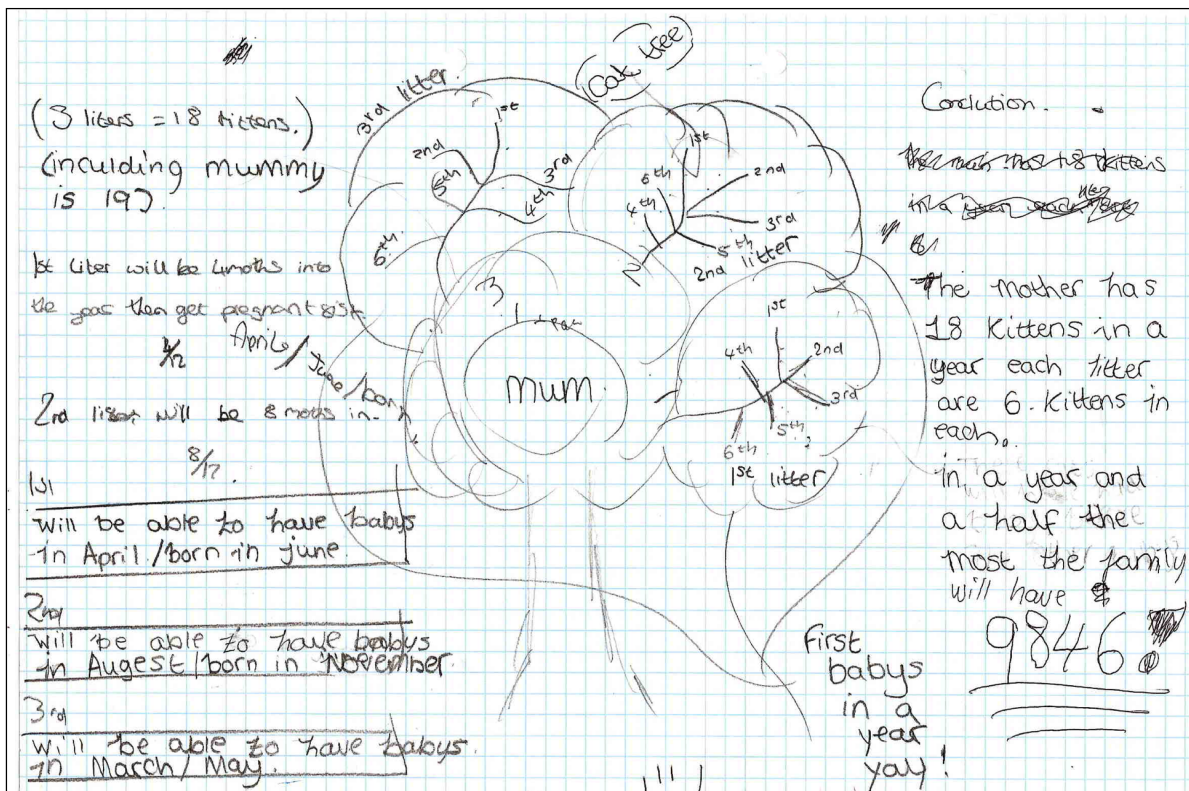 (3 liters = 18 kittens.)
(inculding mummy
is 19)
1st liter will be 4moths into
the year then get pregnant
4/12
Aprile/June/born
2nd liter will be 8 moths in
8/12
1st
will be able to have babys
in April/born in june.
2nd
will be able to have babys
in Augest/born in November
3rd
will be able to have babys.
in March/May.
(Cat tree)
3rd litter.
1st
2nd
3rd
4th
5th
6th.
1st
2nd
3rd
4th
6th
5th
2nd litter
2
3
mum
1st
2nd
3rd
4th
5th
6th
1st litter
First
babys
in a
year
yay!
Conclution.
The mother has
18 Kittens in a
year each litter
are 6. Kittens in
each.
in a year and
a half the
most the family
will have
9846